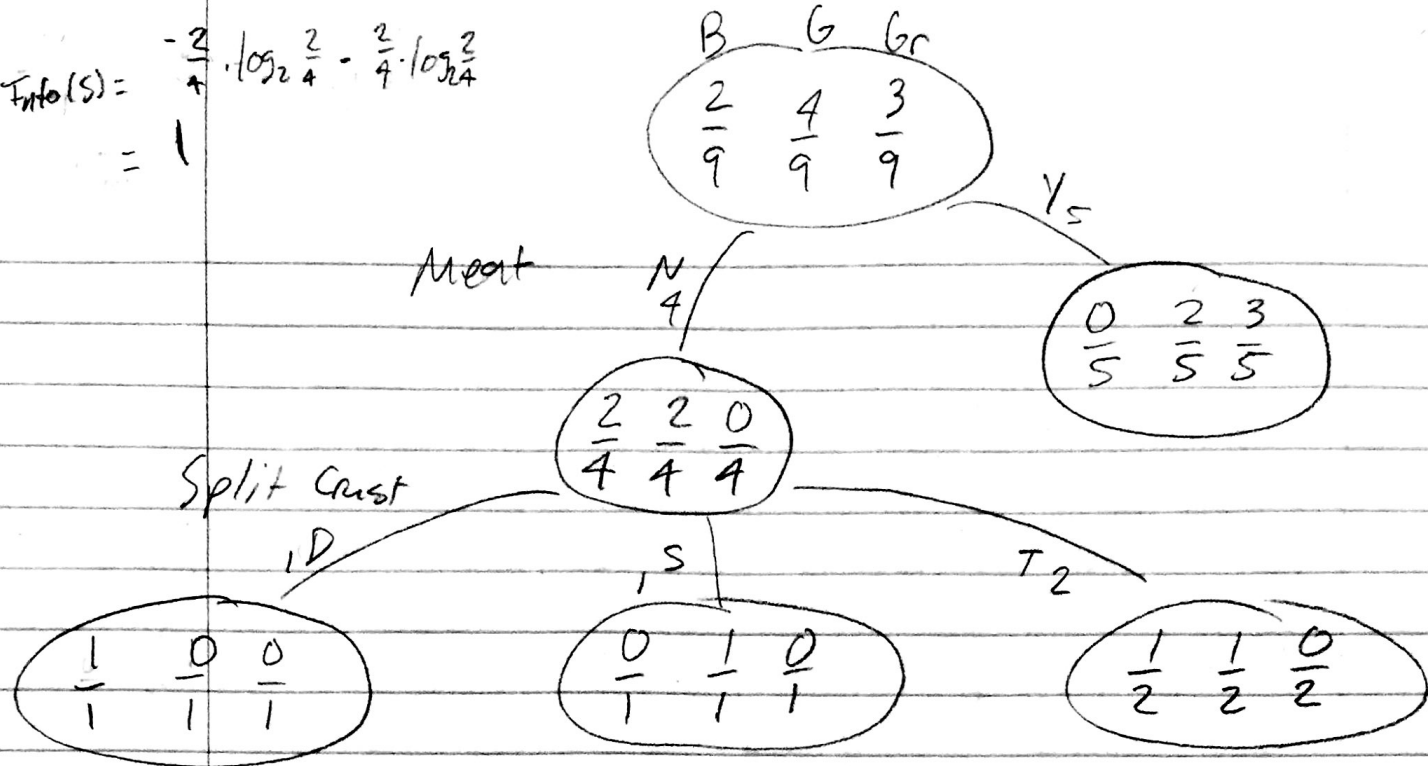 Info(S) = -2/4 · log₂ 2/4 - 2/4 · log₂ 2/4
= 1
B G Gr
2/9 4/9 3/9
Meat N 4 Y 5
2/4 2/4 0/4
0/5 2/5 3/5
Split Crust
1 D 1 S T 2
1/1 0/1 0/1
0/1 1/1 0/1
1/2 1/2 0/2